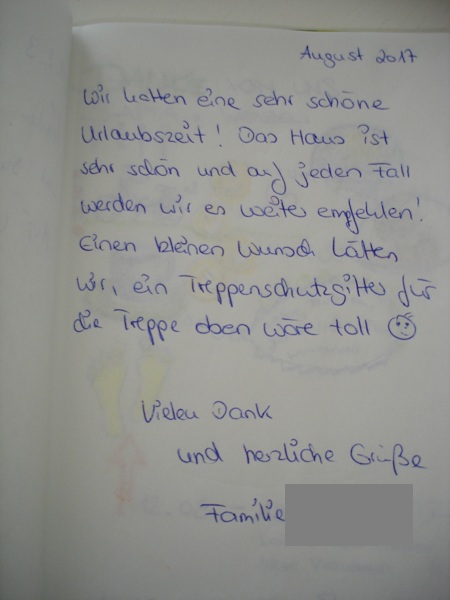 August 2017
Wir hatten eine sehr schöne
Urlaubszeit! Das Haus ist
sehr schön und auf jeden Fall
werden wir es weiter empfehlen!
Einen kleinen Wunsch hätten
wir, ein Treppenschutzgitter für
die Treppe oben wäre toll
Vielen Dank
und herzliche Grüße
Familie